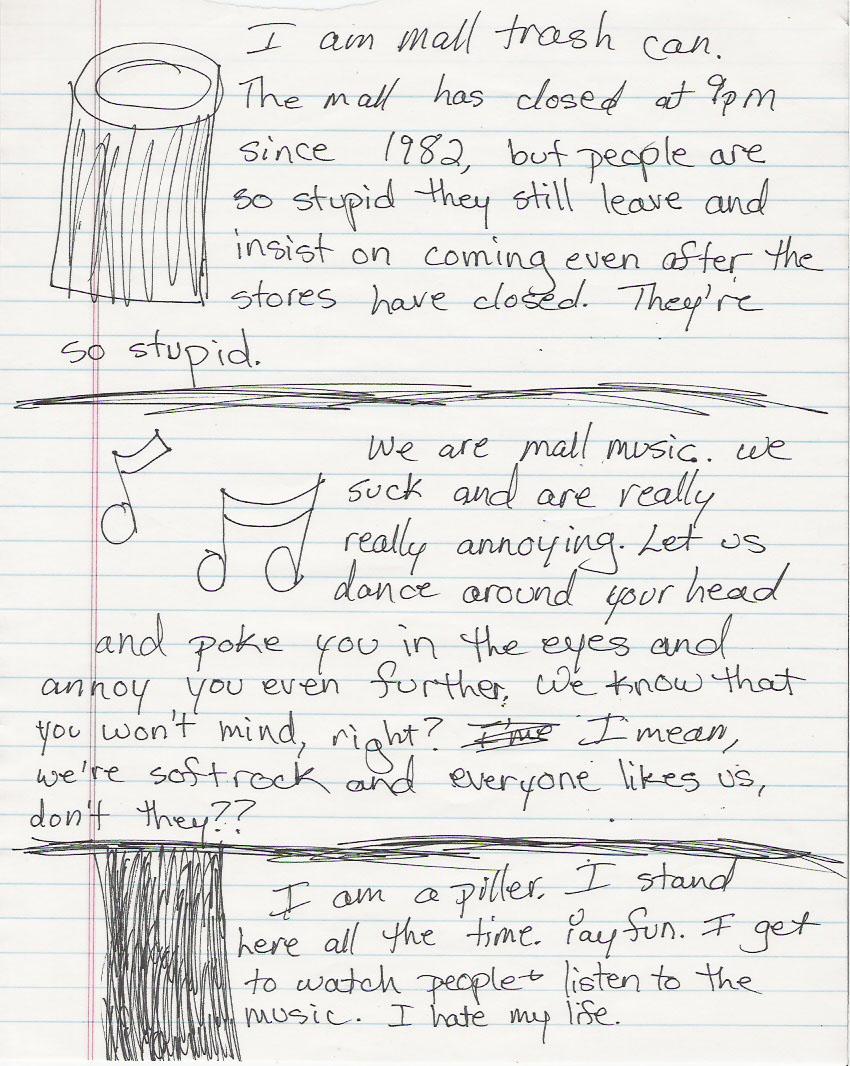 I am mall trash can.
The mall has closed at 9pm
since 1982, but people are
so stupid they still leave and
insist on coming even after the
stores have closed. They're
so stupid.
We are mall music. We
suck and are really
really annoying. Let us
dance around your head
and poke you in the eyes and
annoy you even further. We know that
you won't mind, right? I mean,
we're soft rock and everyone likes us,
don't they??
I am a piller. I stand
here all the time. iay fun. I get
to watch people + listen to the
music. I hate my life.